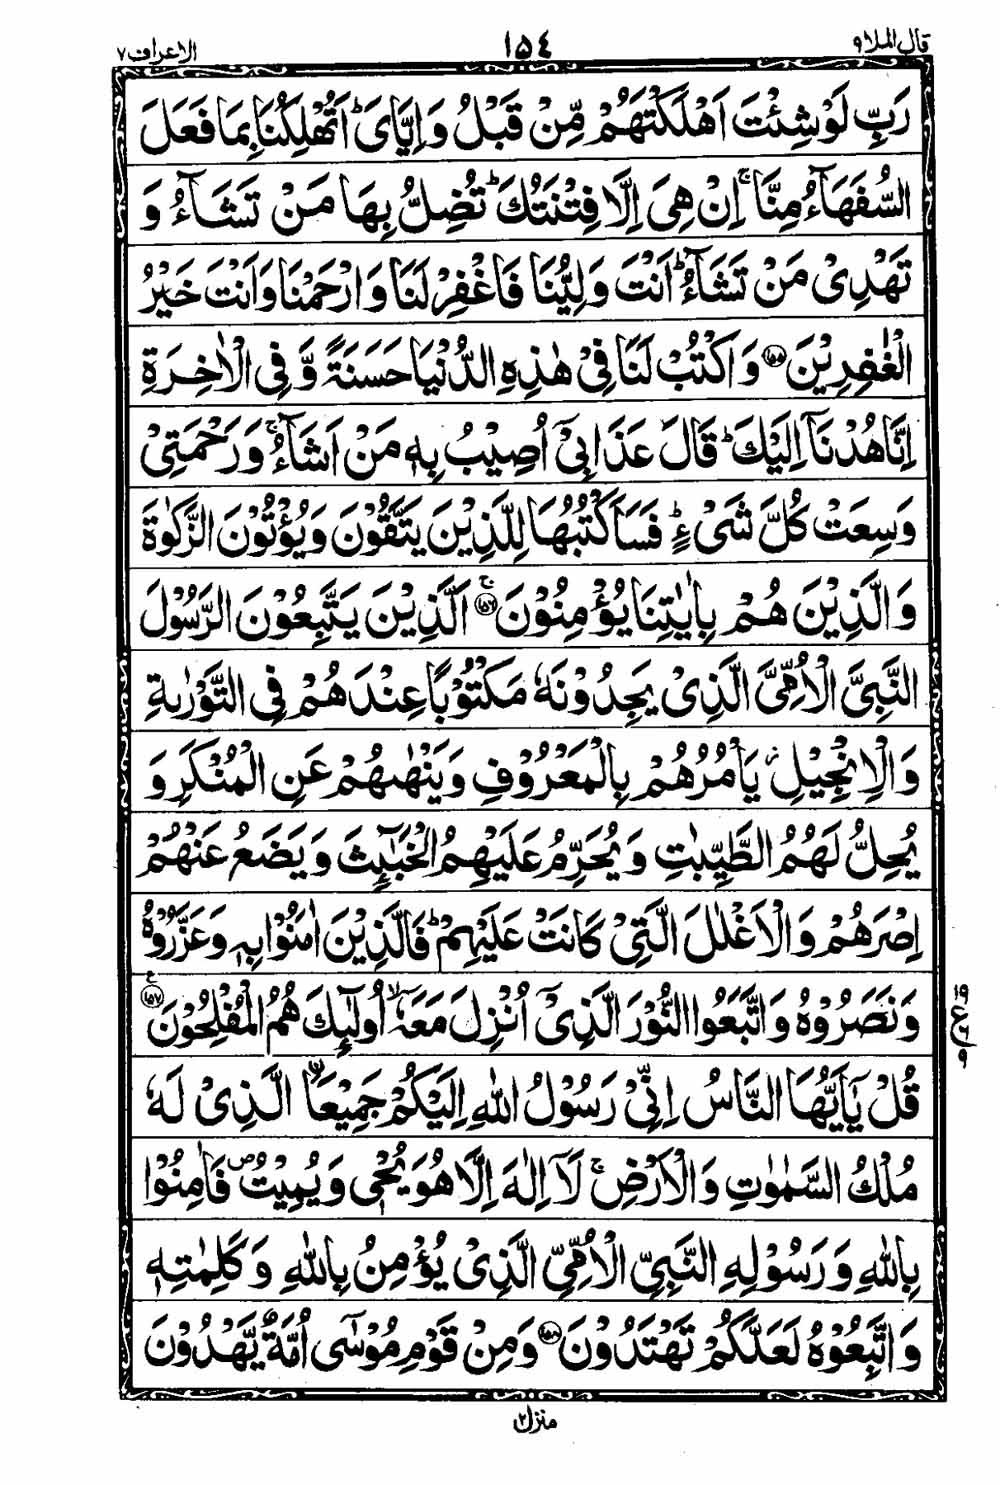 قال الملا ٩ ١٥٤ الاعراف ٧
رَبِّ لَوْ شِئْتَ اَهْلَكْتَهُمْ مِّنْ قَبْلُ وَ اِیَّایَ ؕ اَتُهْلِكُنَا بِمَا فَعَلَ
السُّفَهَآءُ مِنَّا ۚ اِنْ هِیَ اِلَّا فِتْنَتُكَ ؕ تُضِلُّ بِهَا مَنْ تَشَآءُ وَ
تَهْدِیْ مَنْ تَشَآءُ ؕ اَنْتَ وَلِیُّنَا فَاغْفِرْ لَنَا وَ ارْحَمْنَا وَ اَنْتَ خَیْرُ
الْغٰفِرِیْنَ ﴿۱۵۵﴾ وَ اكْتُبْ لَنَا فِیْ هٰذِهِ الدُّنْیَا حَسَنَةً وَّ فِی الْاٰخِرَةِ
اِنَّا هُدْنَاۤ اِلَیْكَ ؕ قَالَ عَذَابِیْۤ اُصِیْبُ بِهٖ مَنْ اَشَآءُ ۚ وَ رَحْمَتِیْ
وَسِعَتْ كُلَّ شَیْءٍ ؕ فَسَاَكْتُبُهَا لِلَّذِیْنَ یَتَّقُوْنَ وَ یُؤْتُوْنَ الزَّكٰوةَ
وَ الَّذِیْنَ هُمْ بِاٰیٰتِنَا یُؤْمِنُوْنَ ﴿۱۵۶﴾ۚ اَلَّذِیْنَ یَتَّبِعُوْنَ الرَّسُوْلَ
النَّبِیَّ الْاُمِّیَّ الَّذِیْ یَجِدُوْنَهٗ مَكْتُوْبًا عِنْدَهُمْ فِی التَّوْرٰىةِ
وَ الْاِنْجِیْلِ ؗ یَاْمُرُهُمْ بِالْمَعْرُوْفِ وَ یَنْهٰىهُمْ عَنِ الْمُنْكَرِ وَ
یُحِلُّ لَهُمُ الطَّیِّبٰتِ وَ یُحَرِّمُ عَلَیْهِمُ الْخَبٰٓىِٕثَ وَ یَضَعُ عَنْهُمْ
اِصْرَهُمْ وَ الْاَغْلٰلَ الَّتِیْ كَانَتْ عَلَیْهِمْ ؕ فَالَّذِیْنَ اٰمَنُوْا بِهٖ وَ عَزَّرُوْهُ
وَ نَصَرُوْهُ وَ اتَّبَعُوا النُّوْرَ الَّذِیْۤ اُنْزِلَ مَعَهٗۤ ۙ اُولٰٓىِٕكَ هُمُ الْمُفْلِحُوْنَ ﴿۱۵۷﴾ ع
قُلْ یٰۤاَیُّهَا النَّاسُ اِنِّیْ رَسُوْلُ اللّٰهِ اِلَیْكُمْ جَمِیْعَا ۟ۙ الَّذِیْ لَهٗ
مُلْكُ السَّمٰوٰتِ وَ الْاَرْضِ ۚ لَاۤ اِلٰهَ اِلَّا هُوَ یُحْیٖ وَ یُمِیْتُ ۪ فَاٰمِنُوْا
بِاللّٰهِ وَ رَسُوْلِهِ النَّبِیِّ الْاُمِّیِّ الَّذِیْ یُؤْمِنُ بِاللّٰهِ وَ كَلِمٰتِهٖ
وَ اتَّبِعُوْهُ لَعَلَّكُمْ تَهْتَدُوْنَ ﴿۱۵۸﴾ وَ مِنْ قَوْمِ مُوْسٰۤى اُمَّةٌ یَّهْدُوْنَ
منزل ٢